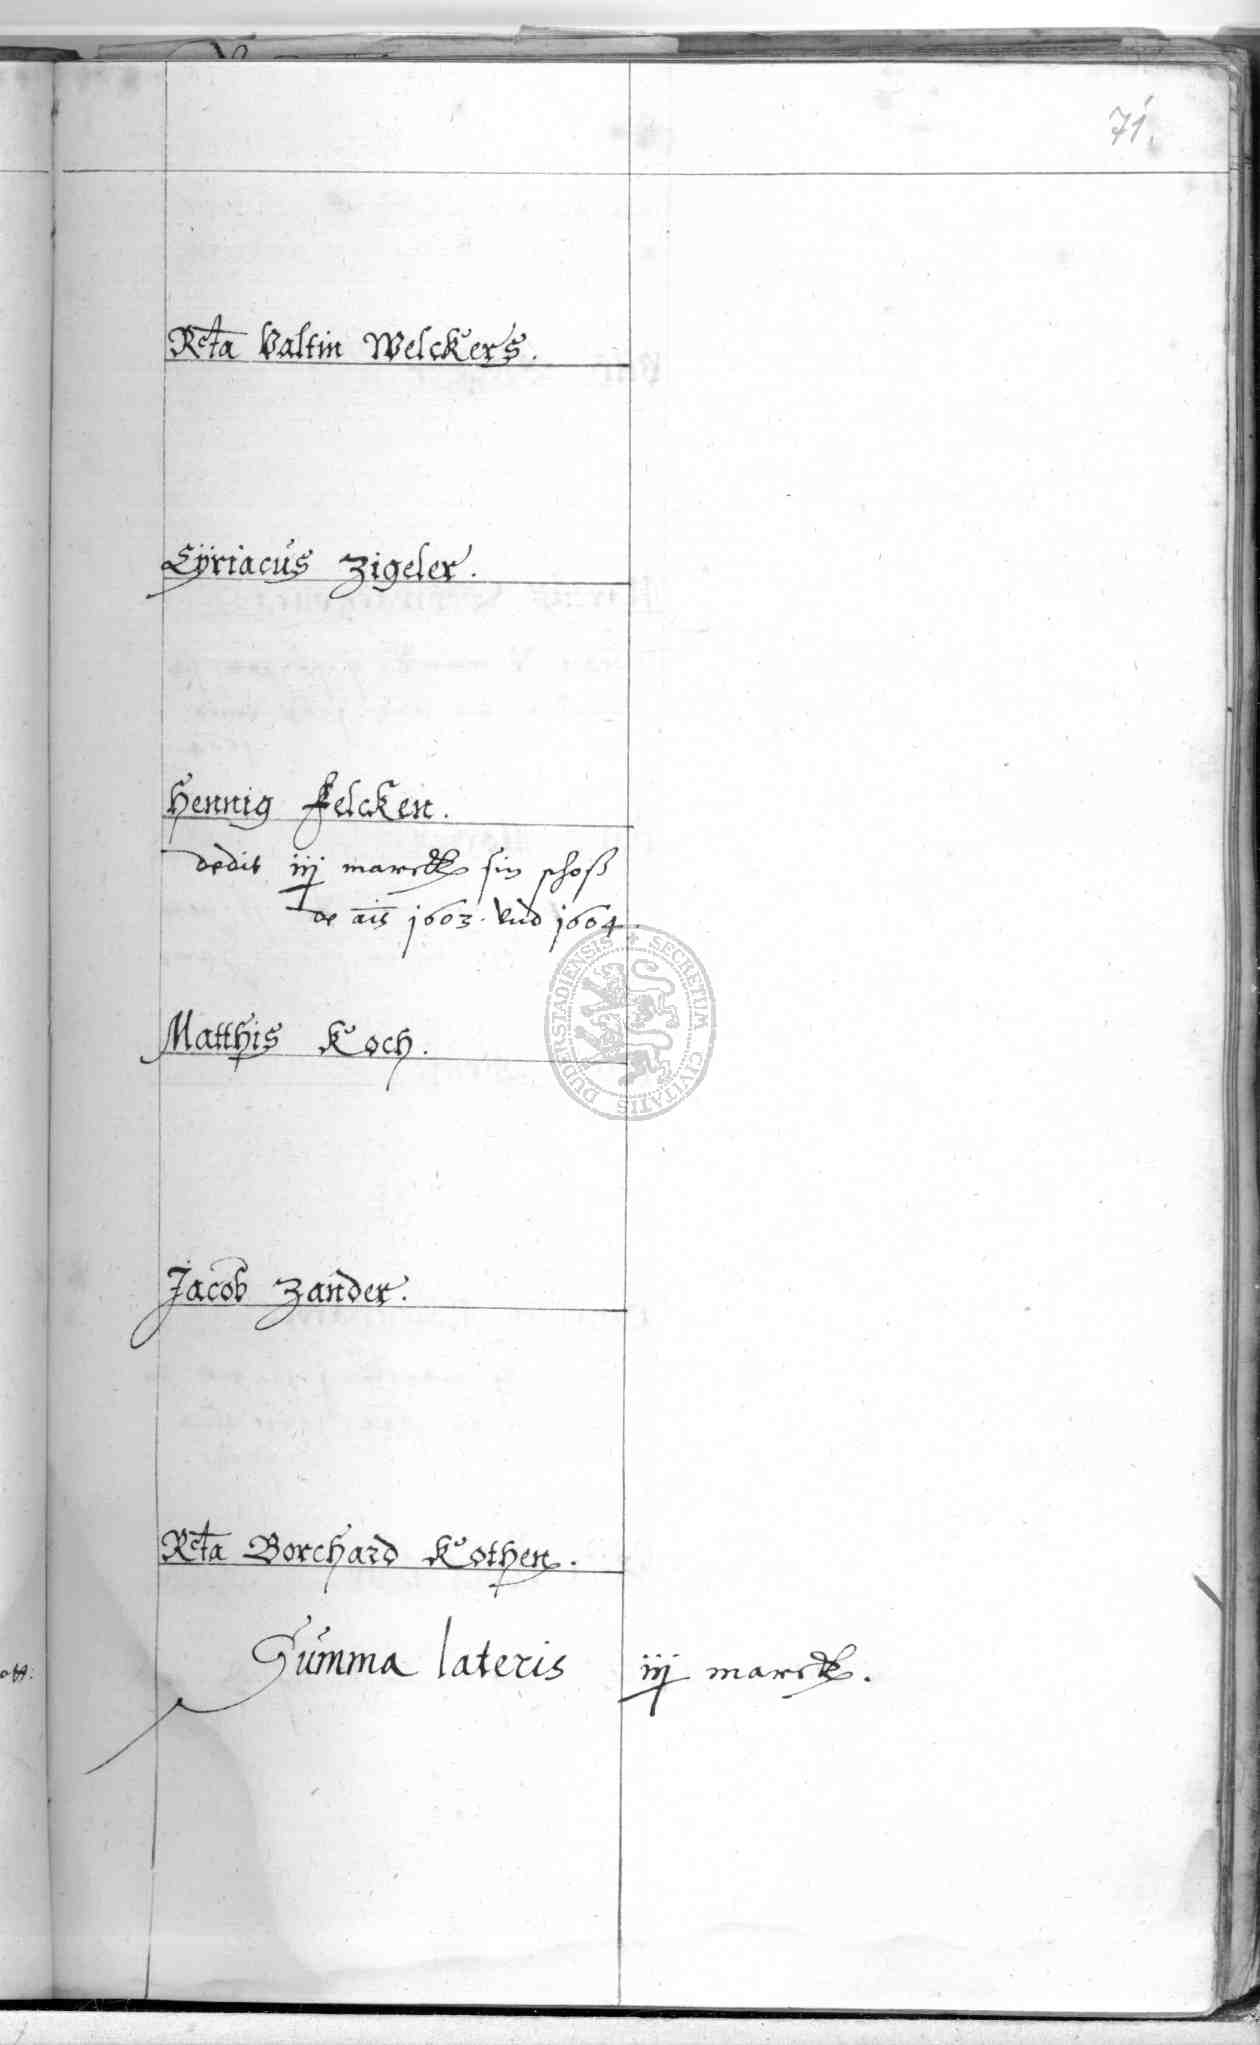 71.
Rcta Valtin Welckers.
Cÿriacus Zigeler.
Hennig Felcken.
dedit iij marck sin schoß
de ais 1603. vnd 1604.
Matthis Koch.
Jacob Zander.
Rcta Borchard Kothen.
Summa lateris iij marck.
SECRETUM CIVITATIS DUDERSTADIENSIS